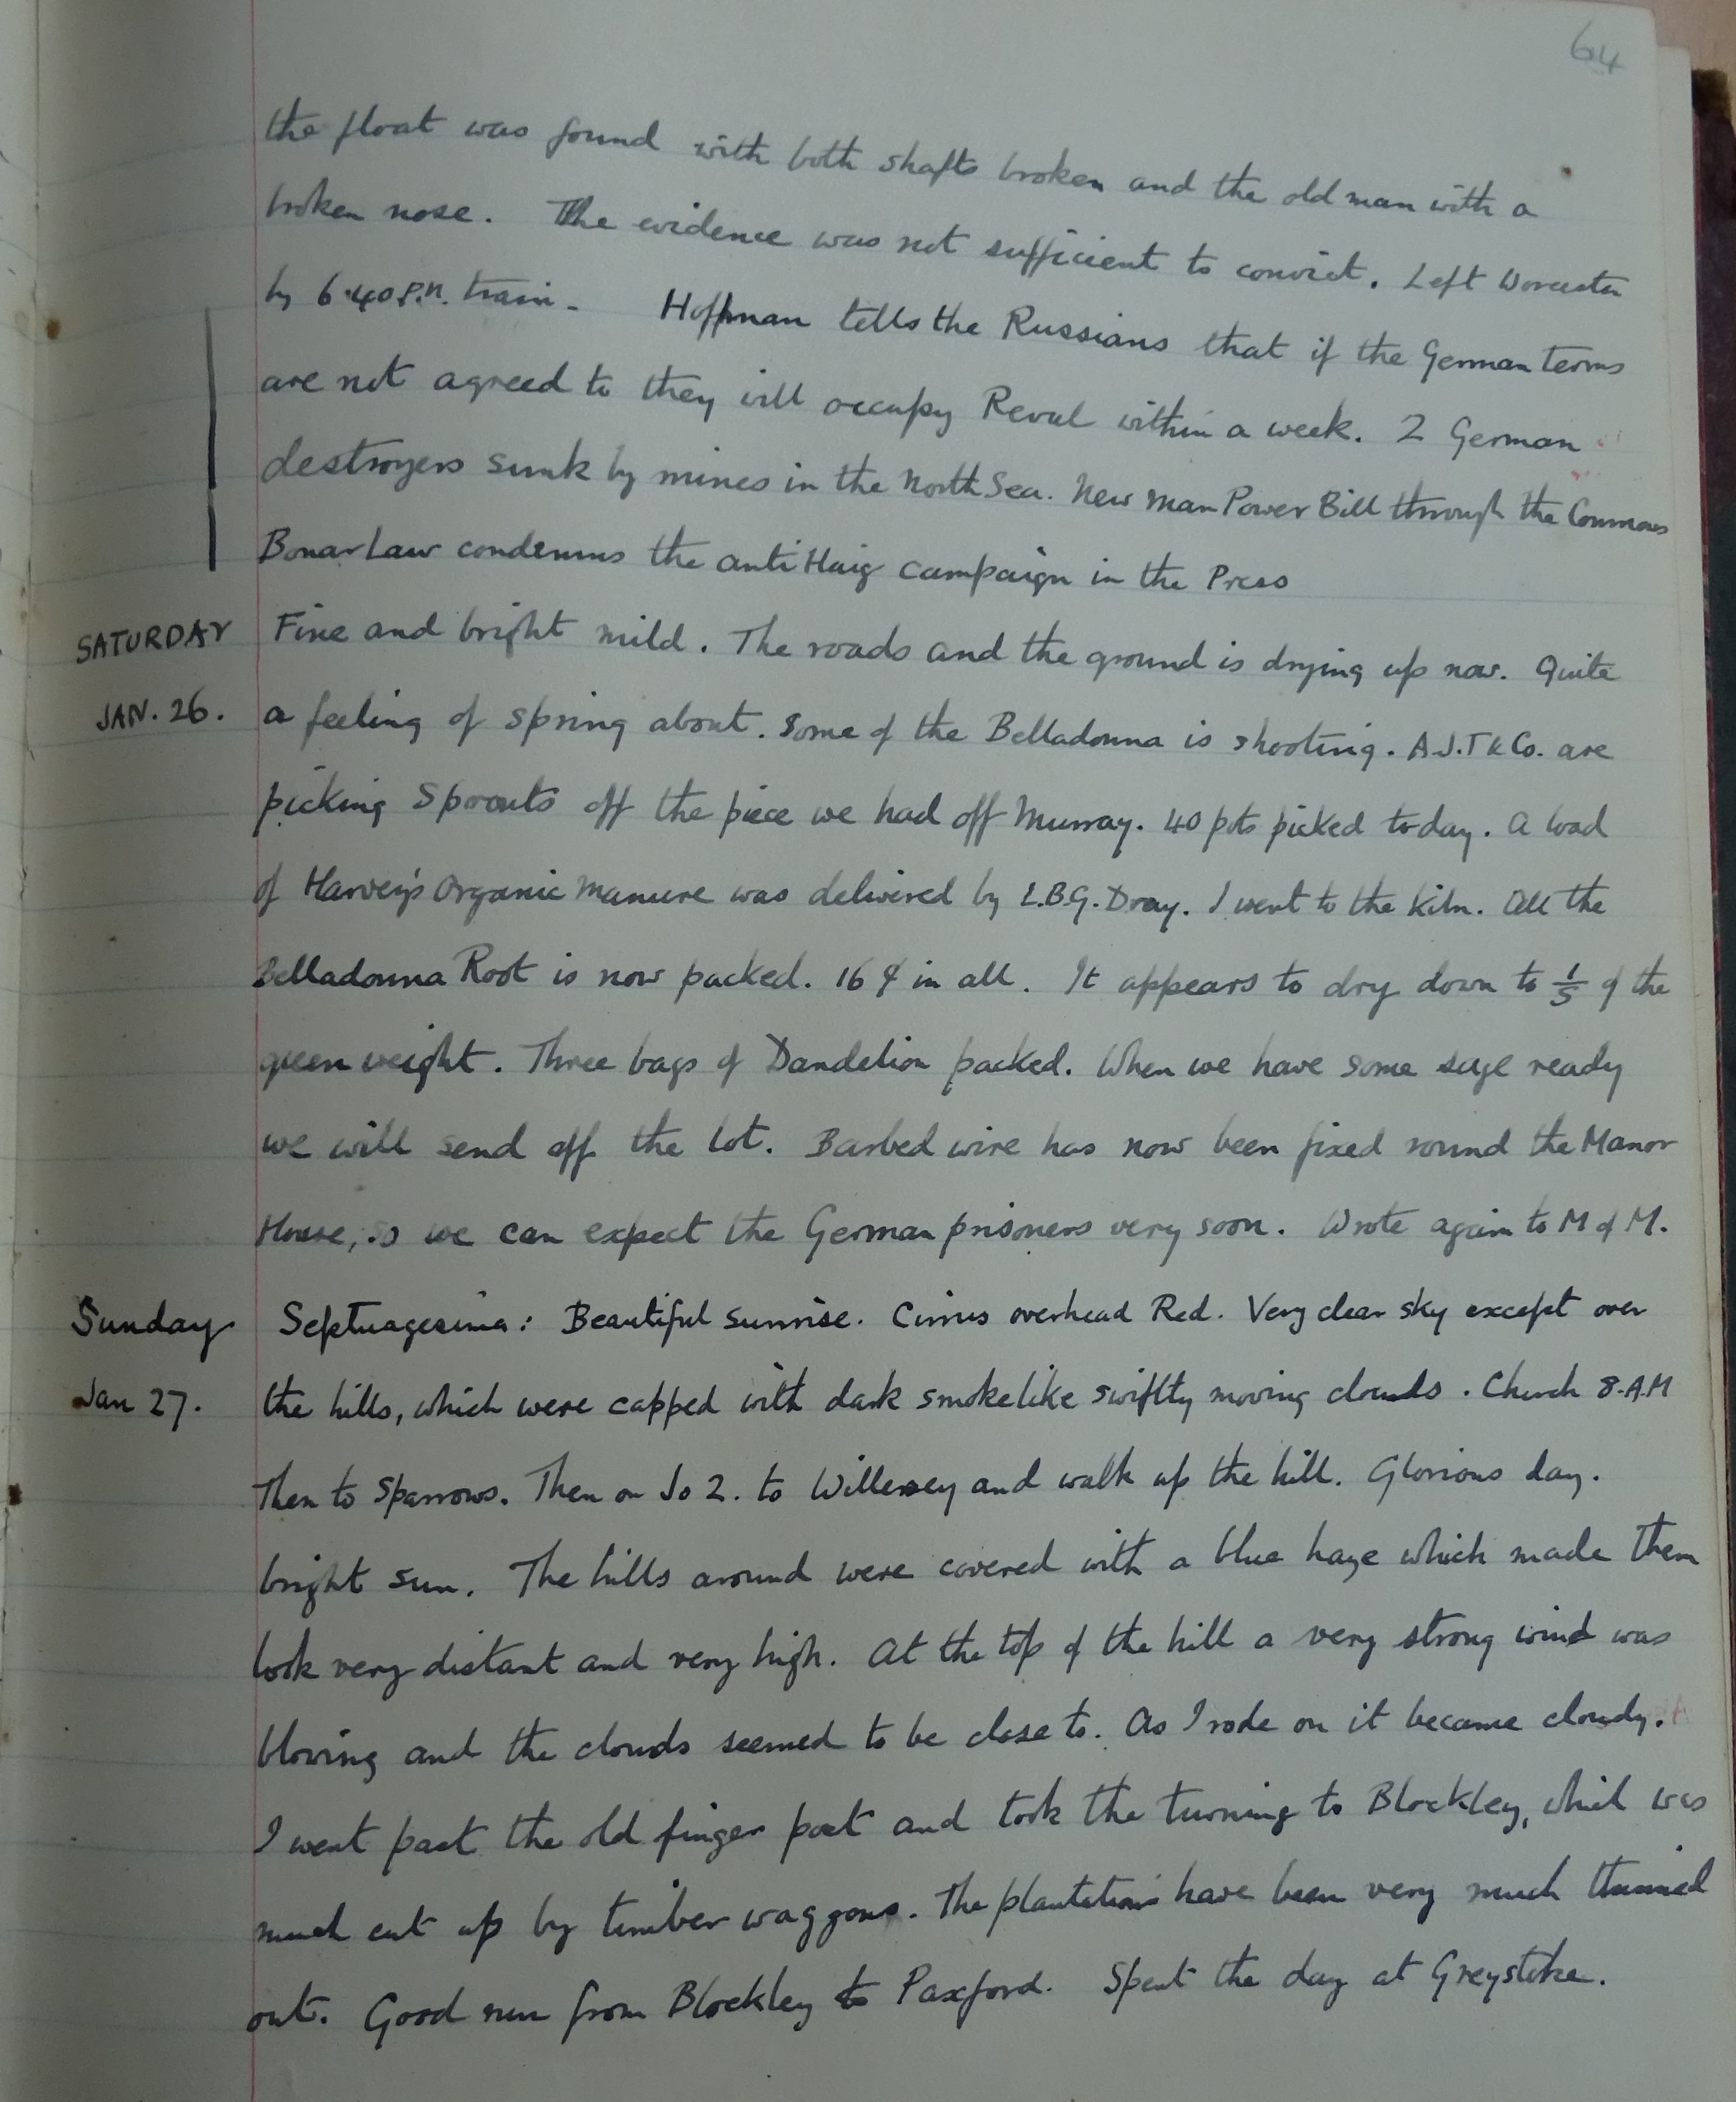 64
the float was found with both shafts broken and the old man with a
broken nose. The evidence was not sufficient to convict. Left Worcester
by 6.40 P.M. train. Hoffman tells the Russians that if the German terms
are not agreed to they will occupy Reval within a week. 2 German
destroyers sunk by mines in the North Sea. New Man Power Bill through the Commons
Bonar Law condemns the anti Haig campaign in the Press
SATURDAY Fine and bright mild. The roads and the ground is drying up now. Quite
JAN. 26. a feeling of spring about. Some of the Belladonna is shooting. A.J.T & Co. are
picking Sprouts off the piece we had off Murray. 40 pots picked today. A load
of Harvey's Organic Manure was delivered by L.B.G. Dray. I went to the Kiln. All the
Belladonna Root is now packed. 16 in all. It appears to dry down to 1/5 of the
green weight. Three bags of Dandelion packed. When we have some sage ready
we will send off the lot. Barbed wire has now been fixed round the Manor
House, so we can expect the German prisoners very soon. Wrote again to M of M.
Sunday Septuagesima: Beautiful sunrise. Cirrus overhead Red. Very clear sky except over
Jan 27. the hills, which were capped with dark smokelike swiftly moving clouds. Church 8.A.M
Then to Sparrows. Then on Jo 2. to Willersey and walk up the hill. Glorious day.
bright sun. The hills around were covered with a blue haze which made them
look very distant and very high. At the top of the hill a very strong wind was
blowing and the clouds seemed to be close to. As I rode on it became cloudy.
I went past the old finger post and took the turning to Blockley, which was
much cut up by timber waggons. The plantations have been very much thinned
out. Good run from Blockley to Paxford. Spent the day at Greystoke.